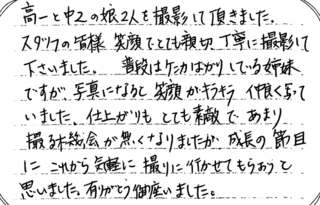 高一と中2の娘2人を撮影して頂きました。
スタッフの皆様 笑顔でとても親切、丁寧に撮影して
下さいました。 普段はケンカばかりしている姉妹
ですが、写真になると 笑顔がキラキラ 仲良く写って
いました。仕上がりも とても素敵で あまり
撮る機会が無くなりましたが、成長の節目
に これから 気軽に 撮りに行かせてもらおうと
思いました。有りがとう御座いました。